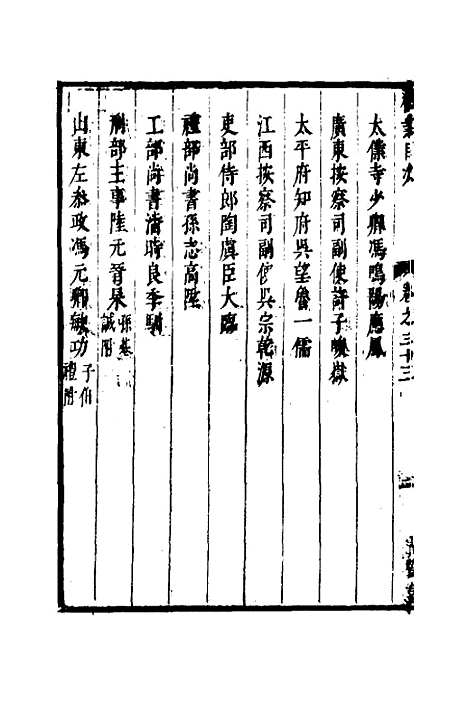 太僕寺少卿馮鳴陽應鳳
廣東按察司副使許子峻嶽
太平府知府吳望魯一儒
江西按察司副使吳宗乾源
吏部侍郎陶虞臣大臨
禮部尚書孫志高陞
工部尚書潘時良季馴
刑部主事陸元晉杲
孫基誠附
山東左參政馮元卿敏功
子伯禮附
卷之三十三